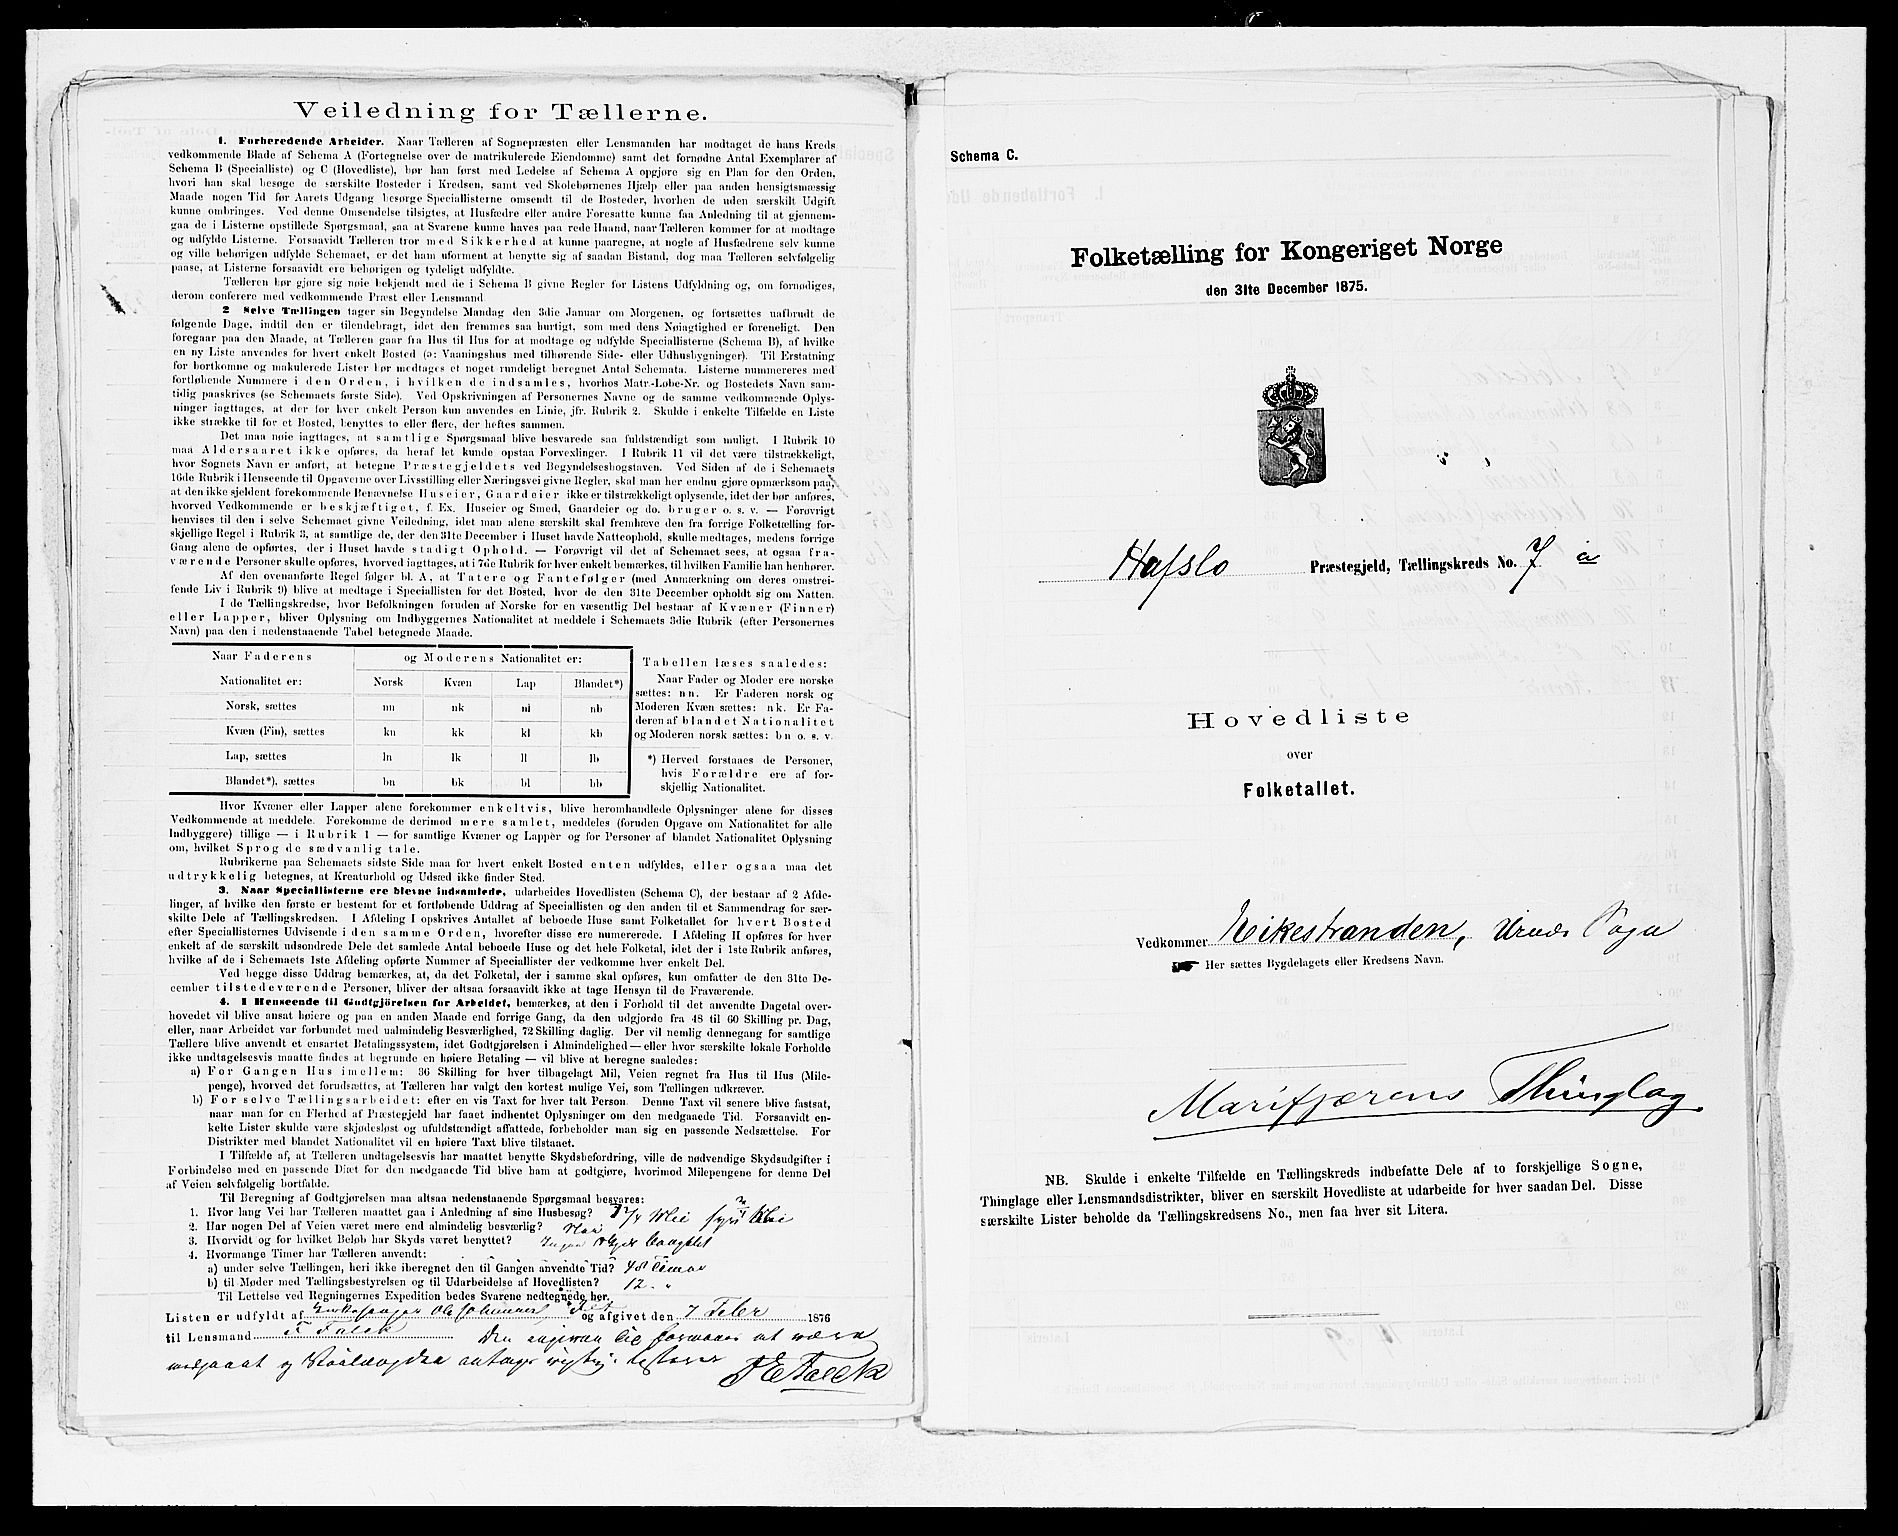 Veiledning for Tællerne.
1. Forberedende Arbeider. Naar Tælleren af Sognepræsten eller Lensmanden har modtaget de hans Kreds
vedkommende Blade af Schema A (Fortegnelse over de matrikulerede Eiendomme) samt det fornødne Antal Exemplarer af
Schema B (Specialliste) og C (Hovedliste), bør han først med Ledelse af Schema A opgjøre sig en Plan for den Orden,
hvori han skal besøge de særskilte Bosteder i Kredsen, samt ved Skolebørnenes Hjælp eller paa anden hensigtsmæssig
Maade nogen Tid før Aarets Udgang besørge Speciallisterne omsendt til de Bosteder, hvorhen de uden særskilt Udgift
kunne ombringes. Ved denne Omsendelse tilsigtes, at Husfædre eller andre Foresatte kunne faa Anledning til at gjennem-
gaa de i Listerne opstillede Spørgsmaal, saa at Svarene kunne haves paa rede Haand, naar Tælleren kommer for at modtage
og udfylde Listerne. Forsaavidt Tælleren tror med Sikkerhed at kunne paaregne, at nogle af Husfædrene selv kunne
og ville behørigen udfylde Schemaet, er det ham uforment at benytte sig af saadan Bistand, dog maa Tælleren selvfølgelig
paase, at Listerne forsaavidt ere behørigen og tydeligt udfyldte.
Tælleren bør gjøre sig nøie bekjendt med de i Schema B givne Regler for Listens Udfyldning og, om fornødiges,
derom conferere med vedkommende Præst eller Lensmand
2 Selve Tællingen tager sin Begyndelse Mandag den 3die Januar om Morgenen, og fortsættes uafbrudt de
følgende Dage, indtil den er tilendebragt, idet den fremmes saa hurtigt, som med dens Nøiagtighed er foreneligt. Den
foregaar paa den Maade, at Tælleren gaar fra Hus til Hus for at modtage og udfylde Speciallisterne (Schema B), af hvilke
en ny Liste anvendes for hvert enkelt Bosted (ɔ: Vaaningshus med tilhørende Side- eller Udhusbygninger). Til Erstatning
for bortkomne og makulerede Lister bør medtages et noget rundeligt beregnet Antal Schemata. Listerne nummereres med
fortløbende Nummere i den Orden, i hvilken de indsamles, hvorhos Matr.-Løbe-Nr. og Bostedets Navn sam-
tidig paaskrives (se Schemaets første Side). Ved Opskrivningen af Personernes Navne og de samme vedkommende Oplys-
ninger iagttages, at der for hver enkelt Person kun anvendes en Linie, jfr. Rubrik 2. Skulde i enkelte Tilfælde en Liste
ikke strække til for et Bosted, benyttes to eller flere, der heftes sammen.
Det maa nøie iagttages, at samtlige Spørgsmaal blive besvarede saa fuldstændigt som muligt. I Rubrik 10
maa Aldersaaret ikke opføres, da heraf let kunde opstaa Forvexlinger. I Rubrik 11 vil det være tilstrækkeligt,
hvor Sognets Navn er anført, at betegne Præstegjeldets ved Begyndelsesbogstaven. Ved Siden af de i Schemaets
16de Rubrik i Henseende til Opgaverne over Livsstilling eller Næringsvei givne Regler, skal man her endnu gjøre opmærksom paa,
at den ikke sjeldent forekommende Benævnelse Huseier, Gaardeier ikke er tilstrækkeligt oplysende, idet der bør anføres,
hvorved Vedkommende er beskjæftiget, f. Ex. Huseier og Smed, Gaardeier og do. bruger o. s. v. — Forøvrigt
henvises til den i selve Schemaet givne Veiledning, idet man alene særskilt skal fremhæve den fra forrige Folketælling for-
skjellige Regel i Rubrik 3, at samtlige de, der den 31te December i Huset havde Natteophold, skulle medtages, medens forrige
Gang alene de opførtes, der i Huset havde stadigt Ophold. — Forøvrigt vil det af Schemaet sees, at ogsaa fra-
værende Personer skulle opføres, hvorved iagttages, at i 7de Rubrik for hver enkelt bemærkes, til hvilken Familie han henhører.
Af den ovenanførte Regel følger bl. A, at Tatere og Fantefølger (med Anmærkning om deres omstrei-
fende Liv i Rubrik 9) blive at medtage i Speciallisten for det Bosted, hvor de den 31te December opholdt sig om Natten.
I de Tællingskredse, hvor Befolkningen foruden af Norske for en væsentlig Del bestaar af Kvæner (Finner)
eller Lapper, bliver Oplysning om Indbyggernes Nationalitet at meddele i Schemaets 3die Rubrik (efter Personernes
Navn) paa den i nedenstaaende Tabel betegnede Maade.
Naar Faderens og Moderens Nationalitet er:
Nationalitet er: Norsk Kvæn Lap Blandet*)
Norsk, sættes nn nk nl nb
Kvæn (Fin), sættes kn kk kl kb
Lap, sættes ln lk ll lb
Blandet*), sættes bn bk bl bb
Tabellen læses saaledes:
Naar Fader og Moder ere norske
sættes: nn. Er Faderen norsk og
Moderen Kvæn sættes: nk. Er Fa-
deren af blandet Nationalitet
og Moderen norsk sættes: bn o. s. v.
*) Herved forstaaes de Personer,
hvis Forældre ere af for-
skjellig Nationalitet.
Hvor Kvæner eller Lapper alene forekommer enkeltvis, blive heromhandlede Oplysninger alene for disses
Vedkommende at meddele. Forekomme de derimod mere samlet, meddeles (foruden Opgave om Nationalitet for alle
Indbyggere) tillige — i Rubrik 1 — for samtlige Kvæner og Lapper og for Personer af blandet Nationalitet Oplysning
om, hvilket Sprog de sædvanlig tale.
Rubrikerne paa Schemaets sidste Side maa for hvert enkelt Bosted enten udfyldes, eller ogsaa maa det
udtrykkelig betegnes, at Kreaturhold og Udsæd ikke finder Sted.
3. Naar Speciallisterne ere blevne indsamlede, udarbeides Hovedlisten (Schema C), der bestaar af 2 Afde-
linger, af hvilke den første er bestemt for et fortløbende Uddrag af Speciallisten og den anden til et Sammendrag for sær-
skilte Dele af Tællingskredsen. I Afdeling I opskrives Antallet af beboede Huse samt Folketallet for hvert Bosted
efter Speciallisternes Udvisende i den samme Orden, hvorefter disse ere numererede. I Afdeling II opføres for hver
enkelt af de særskilt udsondrede Dele det samlede Antal beboede Huse og det hele Folketal, idet der i 1ste Rubrik anføres,
hvilke af de i Schemaets 1ste Afdeling opførte Nummer af Speciallister der vedkomme hver enkelt Del.
Ved begge disse Uddrag bemærkes, at, da det Folketal, der i samme skal opføres, kun omfatter de den 31te De-
cember tilstedeværende Personer, bliver der altsaa forsaavidt ikke at tage Hensyn til de Fraværende.
4. I Henseende til Godtgjörelsen for Arbeidet, bemærkes, at den i Forhold til det anvendte Dagetal over-
hovedet vil blive ansat høiere og paa en anden Maade end forrige Gang, da den udgjorde fra 48 til 60 Skilling pr. Dag,
eller, naar Arbeidet var forbundet med ualmindelig Besværlighed, 72 Skilling daglig. Der vil nemlig dennegang for samtlige
Tællere blive anvendt et ensartet Betalingssystem, idet Godtgjørelsen i Almindelighed — eller hvor særskilte lokale Forholde
ikke undtagelsesvis maatte findes at begrunde en høiere Betaling — vil blive at beregne saaledes:
a) For Gangen Hus imellem: 36 Skilling for hver tilbagelagt Mil, Veien regnet fra Hus til Hus (Mile-
penge), hvorved det forudsættes, at Tælleren har valgt den kortest mulige Vei, som Tællingen udkræver.
b) For selve Tællingsarbeidet: efter en vis Taxt for hver talt Person. Denne Taxt vil senere blive fastsat,
naar man for en Flerhed af Præstegjeld har faaet indhentet Oplysninger om den medgaaede Tid. Forsaavidt en-
kelte Lister skulde være skjødesløst og ufuldstændigt affattede, forbeholder man sig en passende Nedsættelse. For
Distrikter med blandet Nationalitet vil en høiere Taxt blive tilstaaet.
I Tilfælde af, at Tælleren undtagelsesvis har maattet benytte Skydsbefordring, ville de nødvendige Skydsudgifter i
Forbindelse med en passende Diæt for den medgaaede Tid blive ham at godtgjøre, hvorimod Milepengene for denne Del
af Veien selvfølgelig bortfalde.
Til Beregning af Godtgjørelsen maa altsaa nedenstaaende Spørgsmaal besvares:
1. Hvor lang Vei har Tælleren maattet gaa i Anledning af sine Husbesøg?
2. Har nogen Del af Veien været mere end almindelig besværlig?
3. Hvorvidt og for hvilket Beløb har Skyds været benyttet? Ingen
4. Hvormange Timer har Tælleren anvendt:
a) under selve Tællingen, heri ikke iberegnet den til Gangen anvendte Tid? 48 Timer
b) til Møder med Tællingsbestyrelsen og til Udarbeidelse af Hovedlisten? 12 "
Til Lettelse ved Regningernes Expedition bedes Svarene nedtegnede her.
Listen er udfyldt af Kirkesanger Ole Johannes og afgivet den 7 Febr 1876
til Lensmand F Falck Den angivne Tid formaaes at være
medgaaet og
Falck
Schema C.
Folketælling for Kongeriget Norge
den 31te December 1875.
Hafslo Præstegjeld, Tællingskreds No. 7 a
Hovedliste
over
Folketallet.
Vedkommer Eikestranden, Urnes Sogn
Her sættes Bygdelagets eller Kredsens Navn.
Marifjærens Thinglag
NB. Skulde i enkelte Tilfælde en Tællingskreds indbefatte Dele af to forskjellige Sogne,
Thinglage eller Lensmandsdistrikter, bliver en særskilt Hovedliste at udarbeide for hver saadan Del. Disse
særskilte Lister beholde da Tællingskredsens No., men faa hver sit Litera.